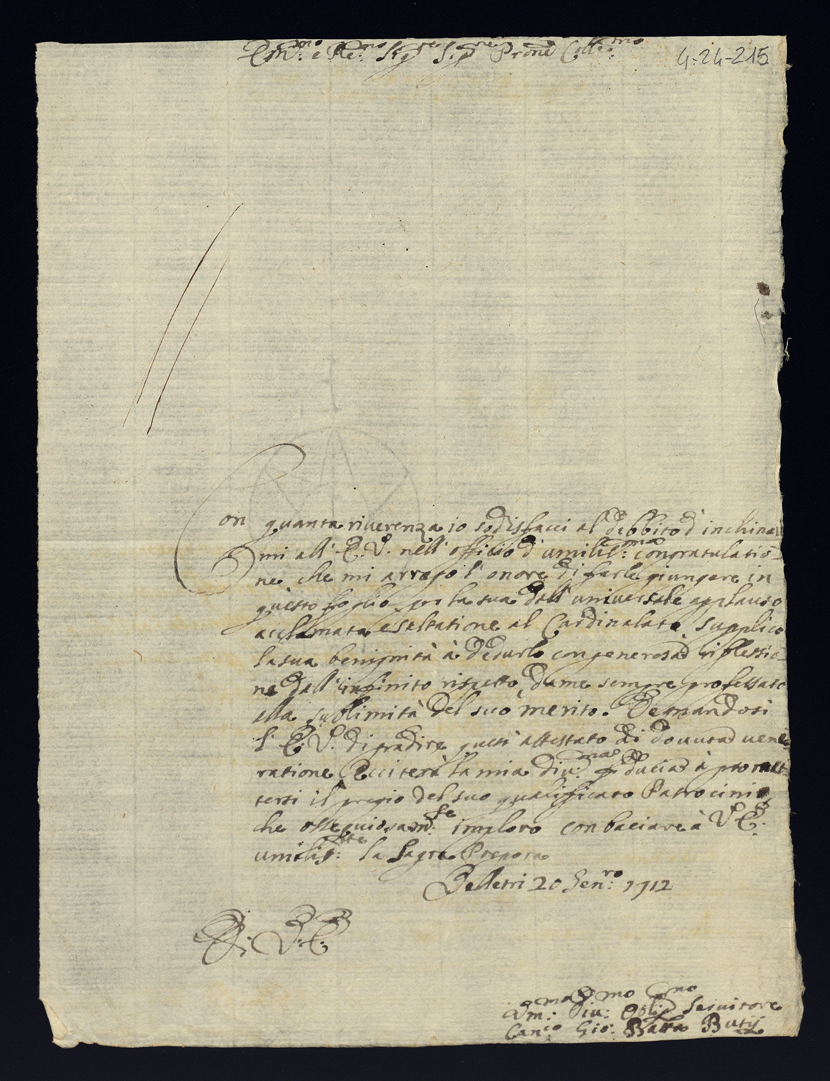 Em.mo e Re.mo Sig.re Sig.re Prone Coll.mo
4-24-215
Con quanta riverenza io sodisfacci al debbito d'inchinar
mi all' E. V. nell' officio d' umilis.ma congratulatio
ne che mi arrogo l' onore di farle giungere in
questo foglio per la sua dall' universale applauso
acclamata esaltatione al Cardinalato, supplico
la sua benignità à desurlo con generosa riflessio
ne dall' infinito rispetto da me sempre professato
alla sublimità del suo merito. Degnandosi
l' E. V. di gradire quest' attestato di dovuta vene
ratione ecciterà la mia div.ma fiducia à promet
tersi il pregio del suo qualificato Patrocinio
che ossequiosam.te imploro con baciare à V. E.
umilis.te la Sagra Porpora
Velletri 20 Gen.ro 1712
Di V. E.
Um.mo Div.mo Obl.mo Servitore
Can.co Gio: Batta Butij